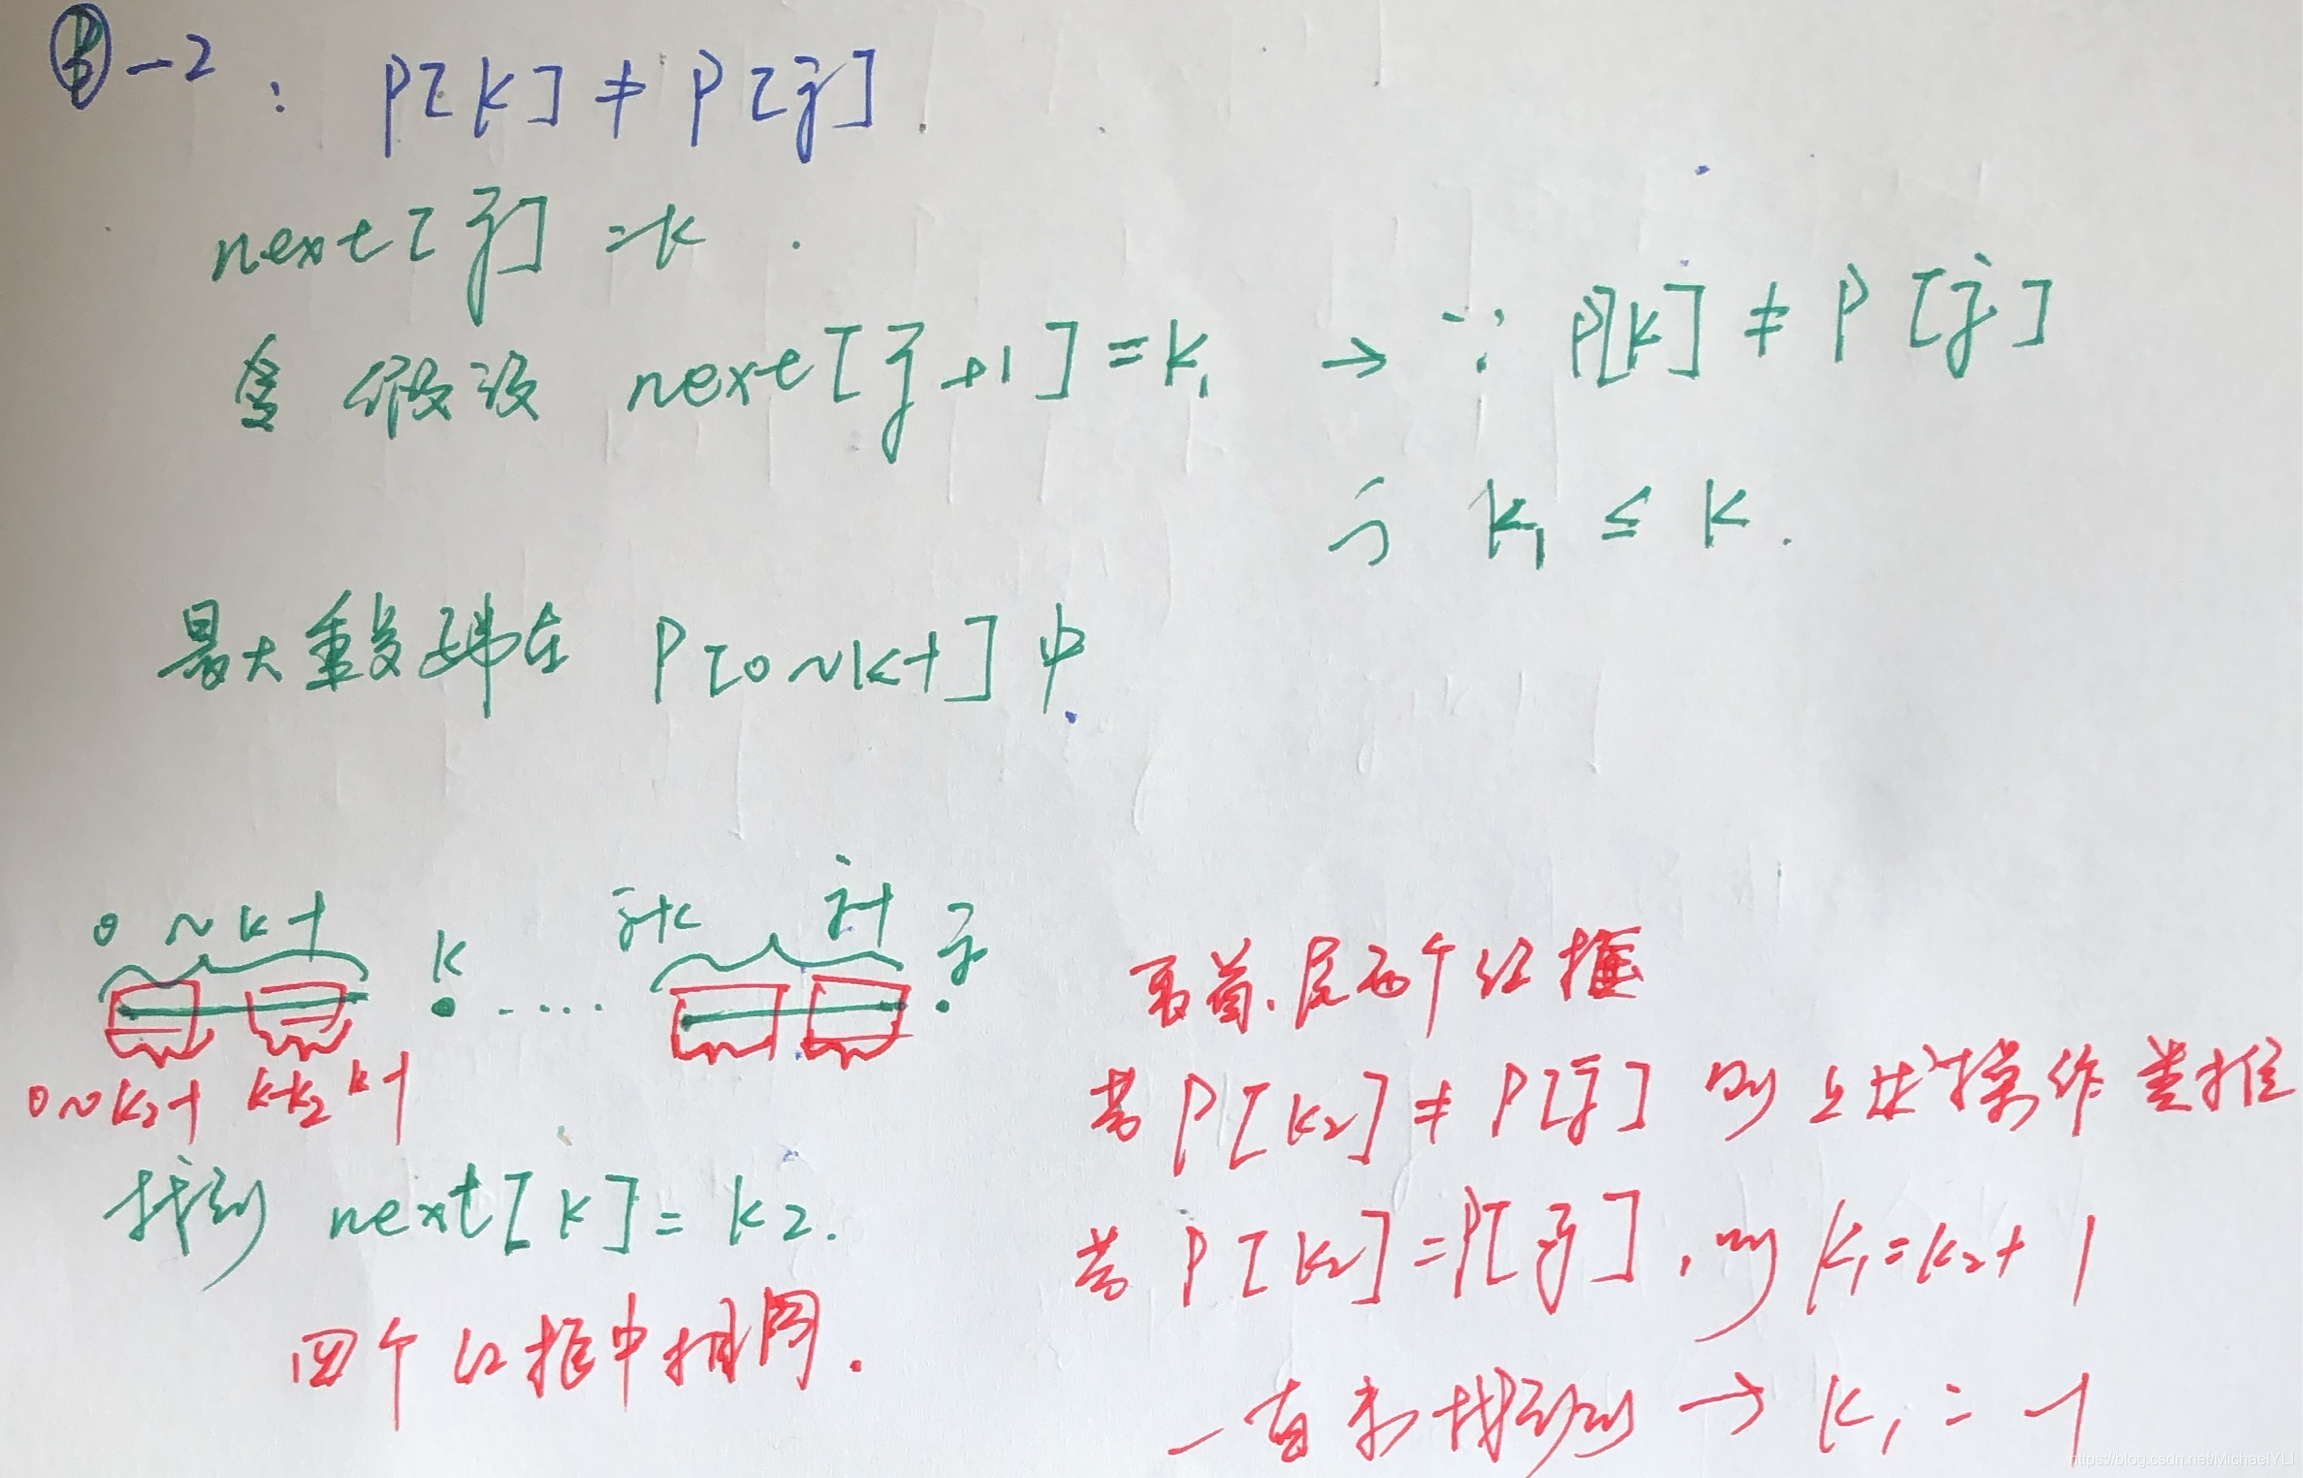 ③-2: P[k] ≠ P[j].
next[j] = k.
假设 next[j+1] = k₁ → ∵ P[k] ≠ P[j]
k₁ ≤ k.
最大重复子串在 P[0~k-1] 中
0~k-1 k j-k j-1 j
0~k₂-1 k-k₂ k-1
找到 next[k] = k2.
四个红框中相同.
取首、尾两个红框
若 P[k₂] ≠ P[j] 则上述操作类推
若 P[k₂] = P[j], 则 k₁ = k₂ + 1
一直未找到则 → k₁ = -1
https://blog.csdn.net/MichaelYLI